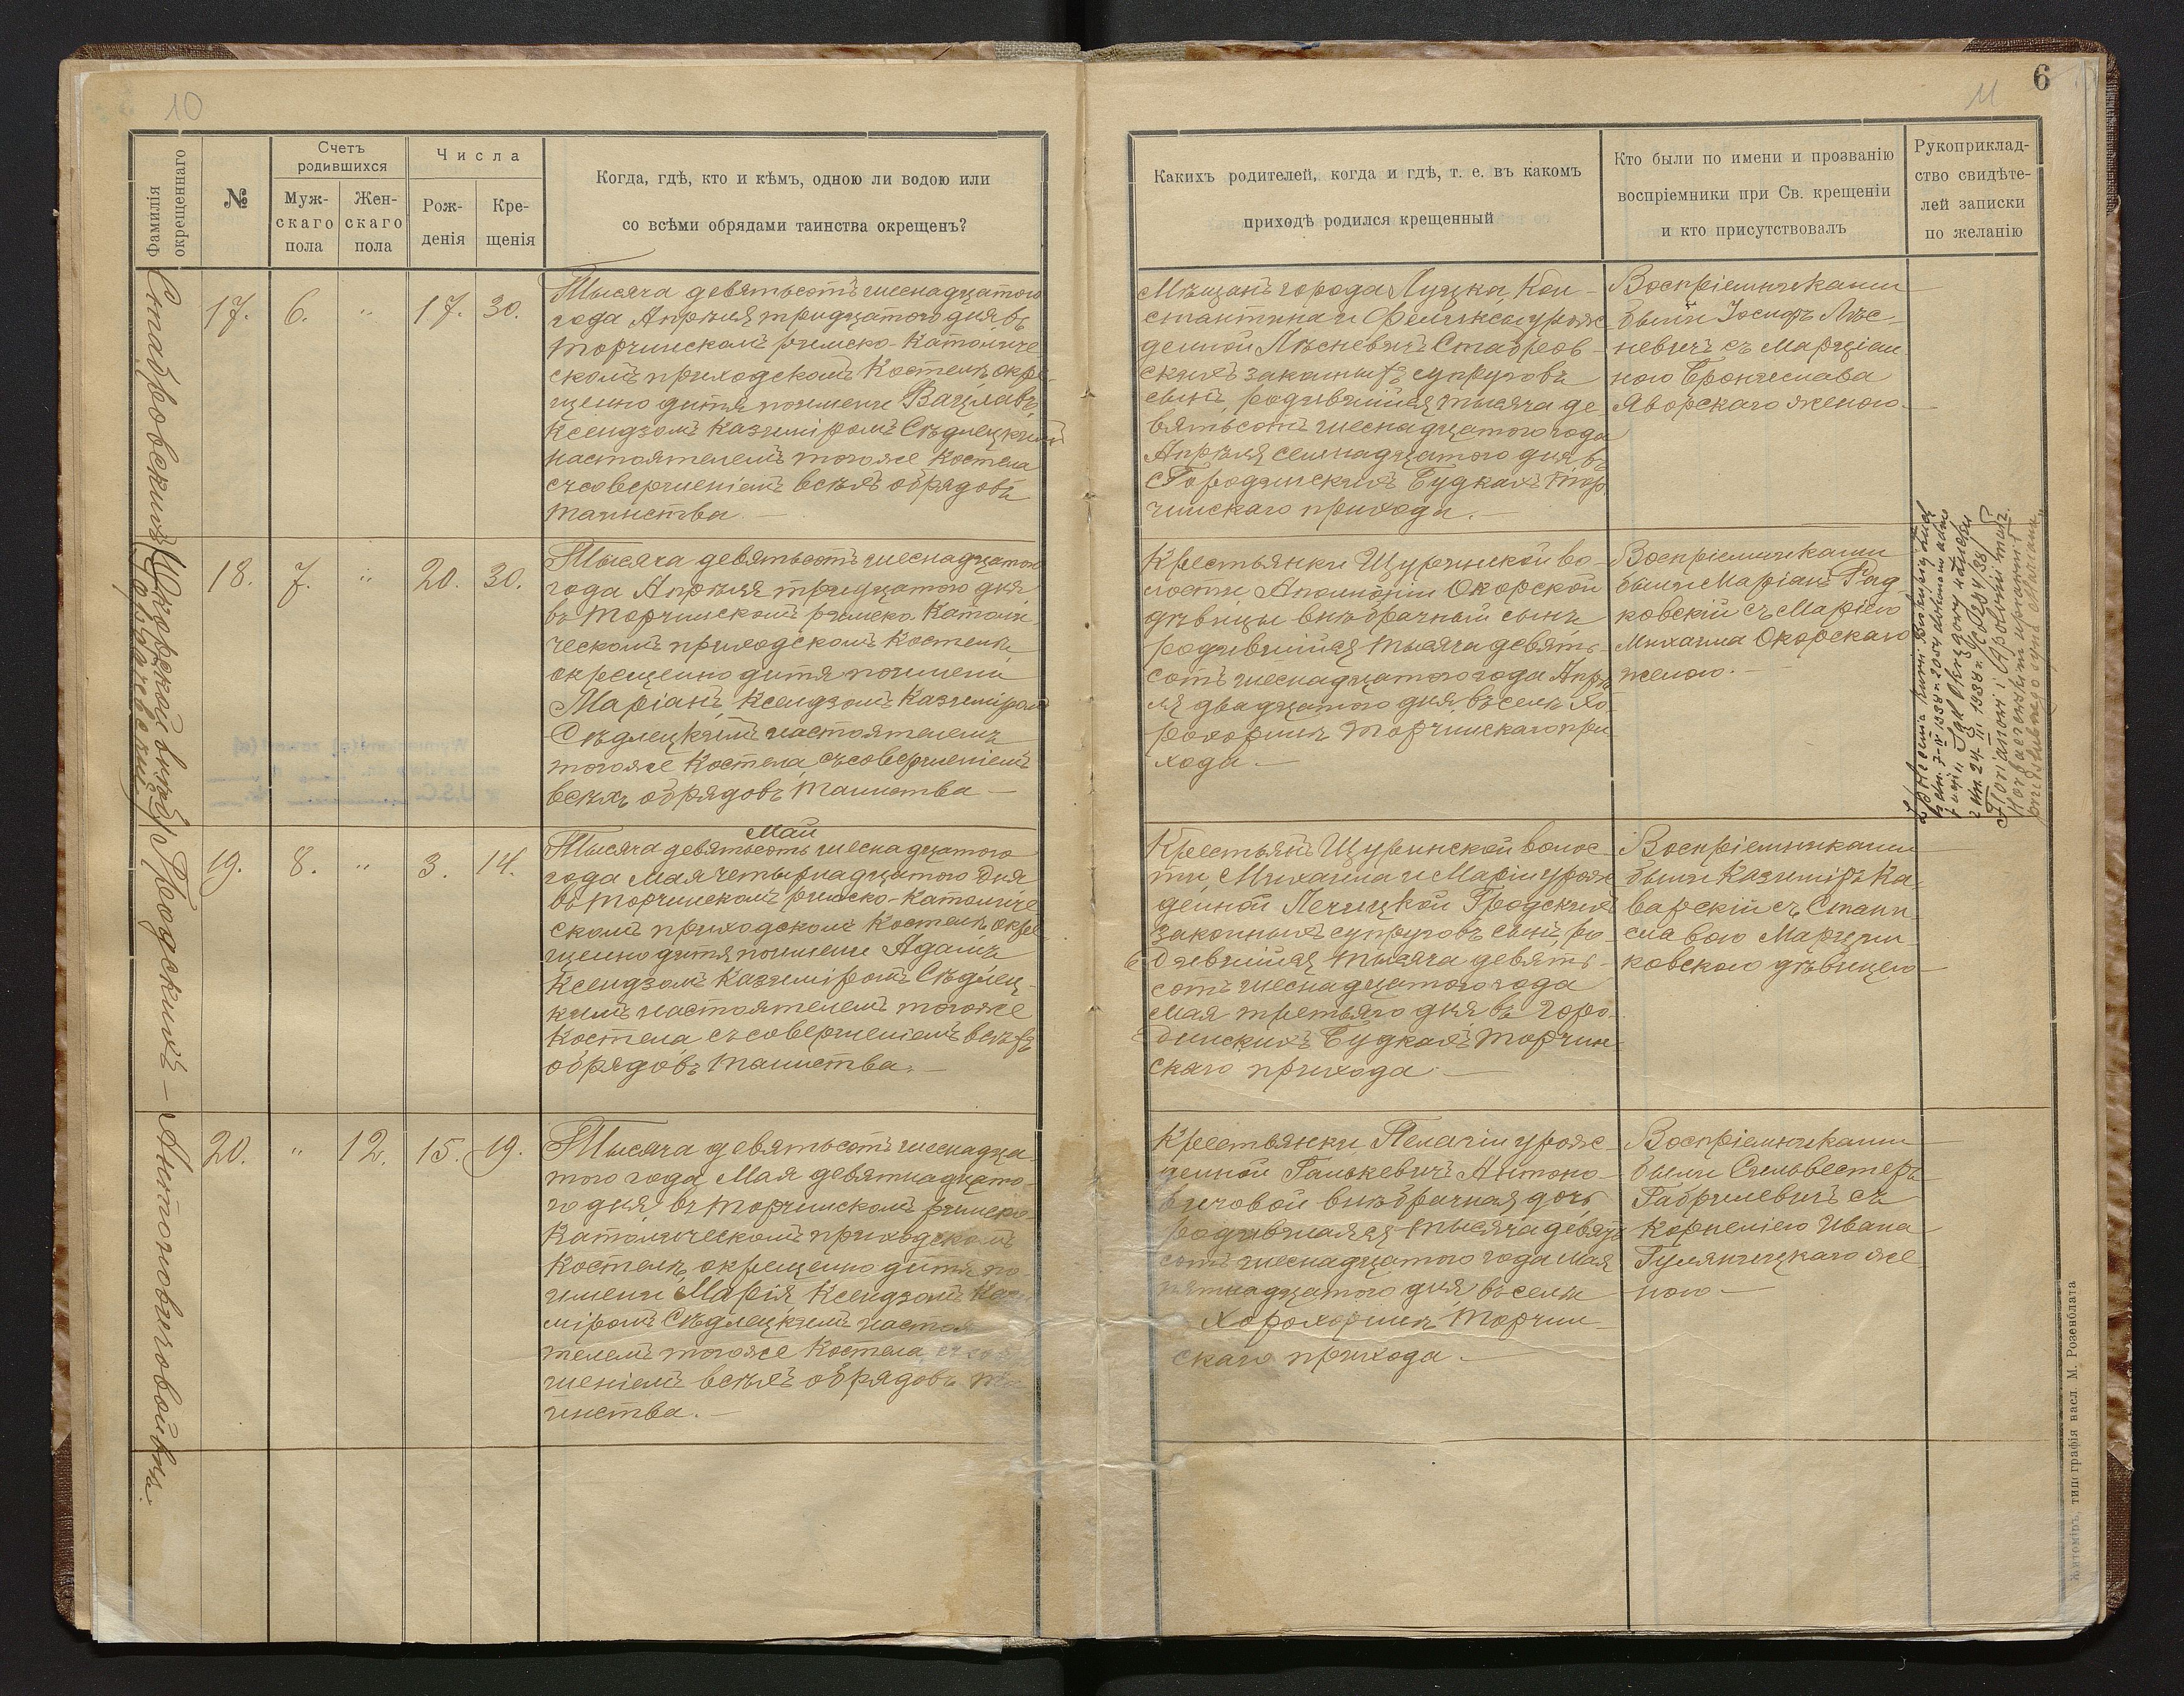 10
Фамилія
окрещеннаго
№
Счетъ
родившихся
Муж-
скаго
пола
Жен-
скаго
пола
Числа
Рож-
денія
Кре-
щенія
Когда, гдѣ, кто и кѣмъ, одною ли водою или
со всѣми обрядами таинства окрещенъ?
17.
6.
"
17.
30.
Тысяча девятьсотъ шеснадцатого
года Апрѣля тридцатого дня въ
Торчинскомъ римско-католиче-
скомъ приходскомъ костелѣ окре-
щенно дитя по имени Вацлавъ,
Ксендзомъ Казиміромъ Сѣдлецкимъ
настоятелемъ тогоже Костела
съ совершеніемъ всѣхъ обрядовъ
таинства. —
18.
7.
"
20.
30.
Тысяча девятьсотъ шеснадцатого
года Апрѣля тридцатого дня
въ Торчинскомъ римско-католи-
ческомъ приходскомъ костелѣ
окрещенно дитя по имени
Маріанъ, Ксендзомъ Казиміромъ
Сѣдлецкимъ настоятелемъ
тогоже Костела, съ совершеніемъ
всѣхъ обрядовъ таинства —
19.
8.
"
3.
14.
Май
Тысяча девятьсотъ шеснадцатого
года Мая четырнадцатого дня
въ Торчинскомъ римско-католиче-
скомъ приходскомъ костелѣ окре-
щенно дитя по имени Адамъ
Ксендзомъ Казиміромъ Сѣдлец-
кимъ настоятелемъ тогоже
Костела съ совершеніемъ всѣхъ
обрядовъ таинства. —
20.
"
12.
15.
19.
Тысяча девятьсотъ шеснадца-
того года Мая девятнадцато-
го дня въ Торчинскомъ римско-
католическомъ приходскомъ
костелѣ, окрещенно дитя по
имени Марія Ксендзомъ Кази-
міромъ Сѣдлецкимъ настоя-
телемъ тогоже Костела
шеніемъ всѣхъ обрядовъ та-
инства. —
Гродскихъ —
Антоновичовой вн.
11
6
Какихъ родителей, когда и гдѣ, т. е. въ какомъ
приходѣ родился крещенный
Кто были по имени и прозванію
воспріемники при Св. крещеніи
и кто присутствовалъ
Рукоприклад-
ство свидѣте-
лей записки
по желанію
Мѣщанъ города Луцка, Кон-
стантина и Феликсы урож-
денной Лѣсневичъ Ставров-
скихъ законныхъ супруговъ
сынъ, родившійся тысяча де-
вятьсотъ шеснадцатого года
Апрѣля семнадцатого дня въ
Городинскихъ Будкахъ Тор-
чинскаго прихода. —
Воспріемниками
были Іосифъ Лѣс-
невичъ съ Марціан-
ною Брониславa
Яворскаго женою. —
Крестьянки Щуринской во-
лости Аполоніи Окорской
дѣвицы внѣбрачный сынъ
родившійся тысяча девять-
сотъ шеснадцатого года Апрѣ-
ля двадцатого дня въ селѣ Хо-
рохоринѣ Торчинскаго при-
хода. —
Воспріемниками
были Маріанъ Рад-
ковскій съ Маріею
Михаила Окорскаго
женою. —
Крестьянъ Щуринской волос-
ти, Михаила и Маріи урож-
денной Печицкой Гродскихъ
законныхъ супруговъ сынъ, ро-
дившійся тысяча девять-
сотъ шеснадцатого года
Мая третьяго дня въ Горо-
динскихъ Будкахъ Торчин-
скаго прихода. —
Воспріемниками
были Казиміръ Ка-
варскій съ Стани-
славою Марцин-
ковскою дѣвицею —
Крестьянки Пелагіи урож-
денной Ганькевичъ Антоно-
вичовой внѣбрачная дочь
родившаяся тысяча девять-
сотъ шеснадцатого года Мая
пятнадцатого дня въ селѣ
Хорохоринѣ Торчин-
скаго прихода. —
Воспріемниками
были Сильвестеръ
Габрилевичъ съ
Корнеліею Ивана
Гуляницкаго же-
ною —
Житоміръ, типографія насл. М. Розенблата